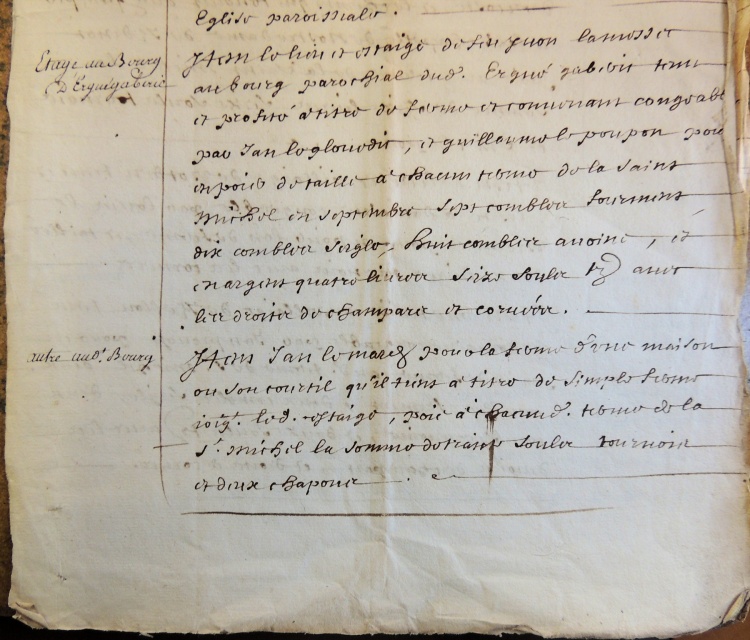 Eglise paroissiale.
Etage au Bourg
D'Erguegaberic
Item le lieu et estaige de feu yvon
au bourg parochial dud. Ergué gaberic tenu
et profité a titre de ferme et convenant congeable
par Jan le glouedic, et guillaume le poupon poie
de taille a chacun terme de la Saint
Michel en septembre sept combles fourment,
dix combles seigle, huit combles avoine, et
en argent quatre livres seize soulz tz avec
les droits de champars et corvées.
autre aud. Bourg
Item Jan le marec pour la ferme d'une maison
ou son courtil qu'il tient a titre de simple ferme
joig.t led. estaige, poie a chacund. terme de la
S.t michel la somme de trante soulz tournois
et deux chapons.